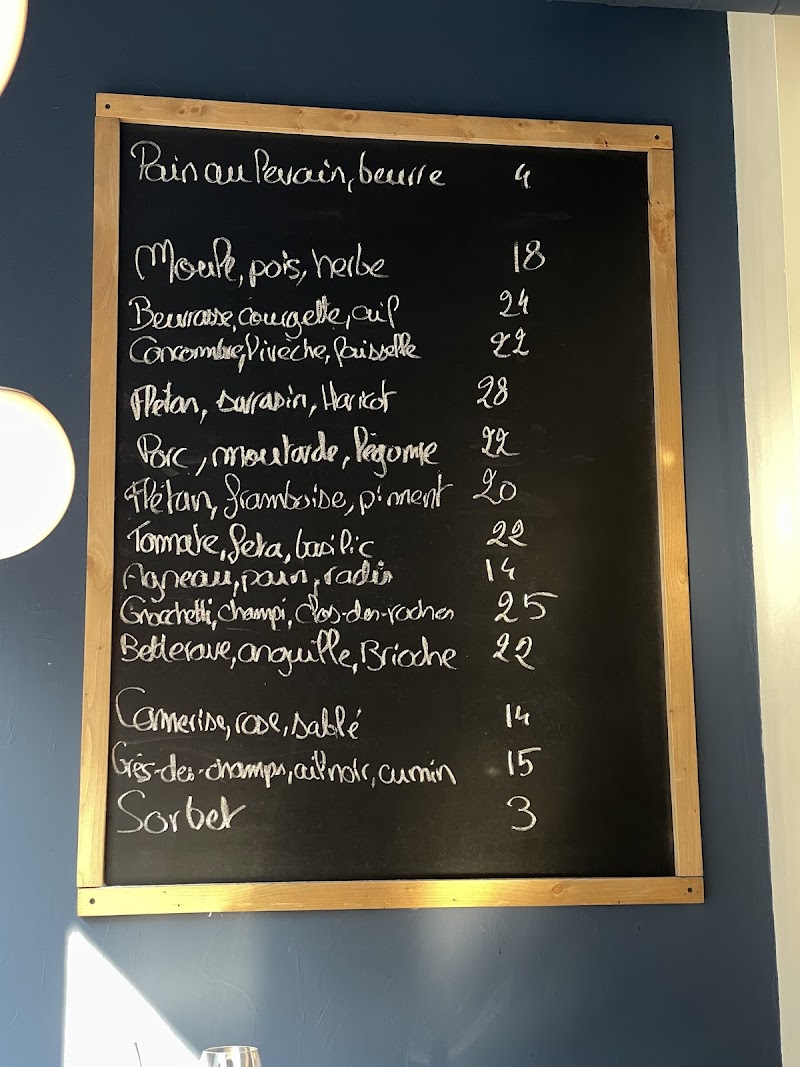 Pain au levain, beurre 4
Moule, pois, herbe 18
Beurrasse, courgette, ail 24
Concombre, livèche, faisselle 22
Flétan, sarrasin, Haricot 28
Porc, moutarde, légume 22
Flétan, framboise, piment 20
Tomate, feta, basilic 22
Agneau, pain, radis 14
Gnocchetti, champi, clos-des-roches 25
Betterave, anguille, Brioche 22
Camerise, rose, sablé 14
Grès-des-champs, ail noir, cumin 15
Sorbet 3